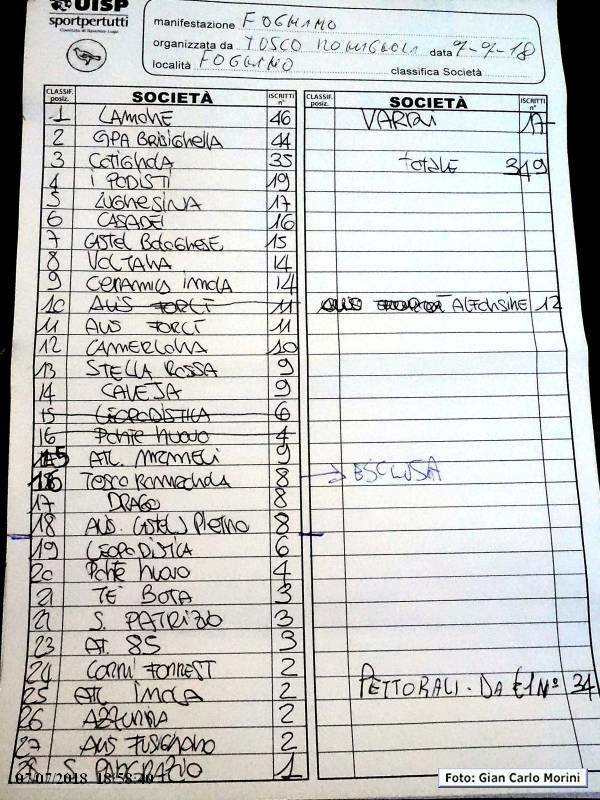 UISP
sportpertutti
Comitato di Ravenna-Lugo
manifestazione FOGNANO
organizzata da TOSCO ROMAGNOLA data 7-7-18
località FOGNANO
classifica Società
CLASSIF. posiz. SOCIETÀ ISCRITTI n°
1 LAMONE 46
2 GPA BRISIGHELLA 44
3 COTIGNOLA 35
4 I PODISTI 19
5 LUGHESINA 17
6 CASADEI 16
7 CASTEL BOLOGNESE 15
8 VOLTANA 14
9 CERAMICA IMOLA 14
10 AVIS FORLÌ 11
11 AVIS FORLÌ 11
12 CAMERLONA 10
13 STELLA ROSSA 9
14 CAVEJA 9
15 LEOPODISTICA 6
16 PONTE NUOVO 4
15 ATL. MAMELI 9
16 TOSCO ROMAGNOLA 8
17 DRAGO 8
18 AVIS CASTEL S PIETRO 8
19 LEOPODISTICA 6
20 PONTE NUOVO 4
21 TE BOTA 3
22 S. PATRIZIO 3
23 AT. 85 3
24 CORRI FORREST 2
25 ATL IMOLA 2
26 AZZURRA 2
27 AVIS FUSIGNANO 2
28 S. PANCRAZIO 1
CLASSIF. posiz. SOCIETÀ ISCRITTI n°
VARI 17
TOTALE 349
AVIS ALFONSINE 12
ESCLUSA
PETTORALI. DA €1 N° 34
07/07/2018 18:58:40
Foto: Gian Carlo Morini